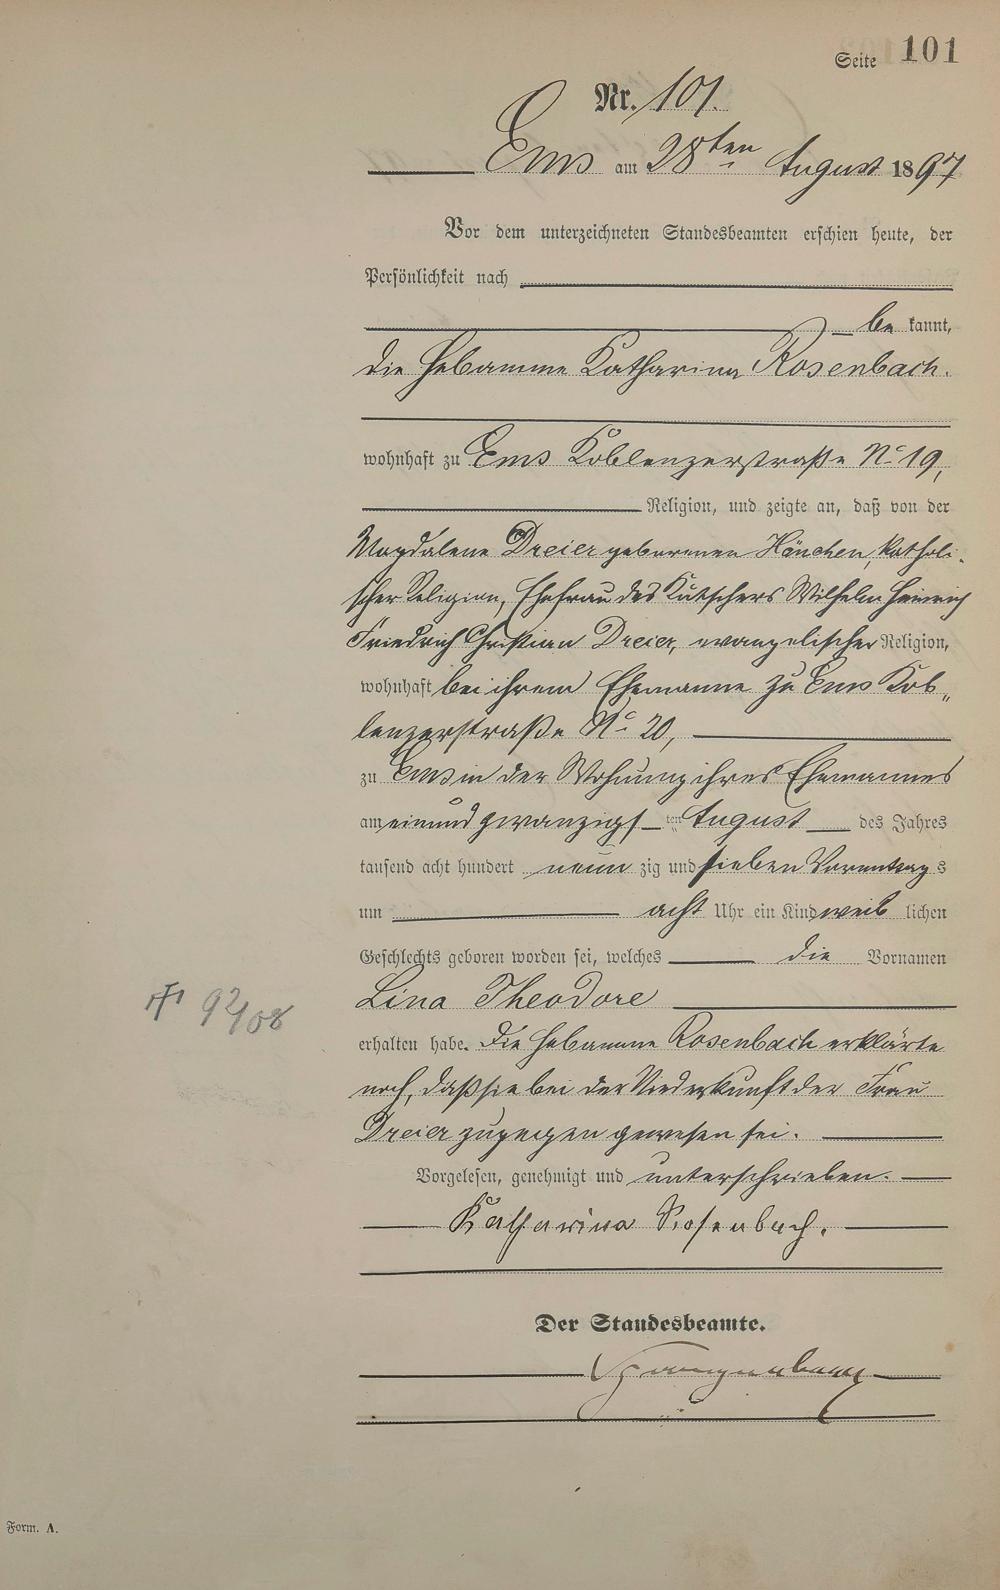 Seite 101
Nr. 101.
Ems am 28ten August 1897
Vor dem unterzeichneten Standesbeamten erschien heute, der
Persönlichkeit nach
be kannt,
die Hebamme Katharina Rosenbach.
wohnhaft zu Ems Koblenzerstraße No 19,
Religion, und zeigte an, daß von der
Magdalena Dreier geborenen Hänchen, katholi-
scher Religion, Ehefrau des Kutschers Wilhelm Heinrich
Friedrich Christian Dreier, evangelischer Religion,
wohnhaft bei ihrem Ehemanne zu Ems Kob„
lenzerstraße No 20,
zu Ems in der Wohnung ihres Ehemannes
am einund zwanzigs ten August des Jahres
tausend acht hundert neun zig und sieben Vormittag s
um acht Uhr ein Kind weib lichen
Geschlechts geboren worden sei, welches die Vornamen
Lina Theodore
92/08
erhalten habe. Die Hebamme Rosenbach erklärte
noch, daß sie bei der Niederkunft der Frau
Dreier zugegen gewesen sei.
Vorgelesen, genehmigt und unterschrieben.
Katharina Rosenbach.
Der Standesbeamte.
Form. A.